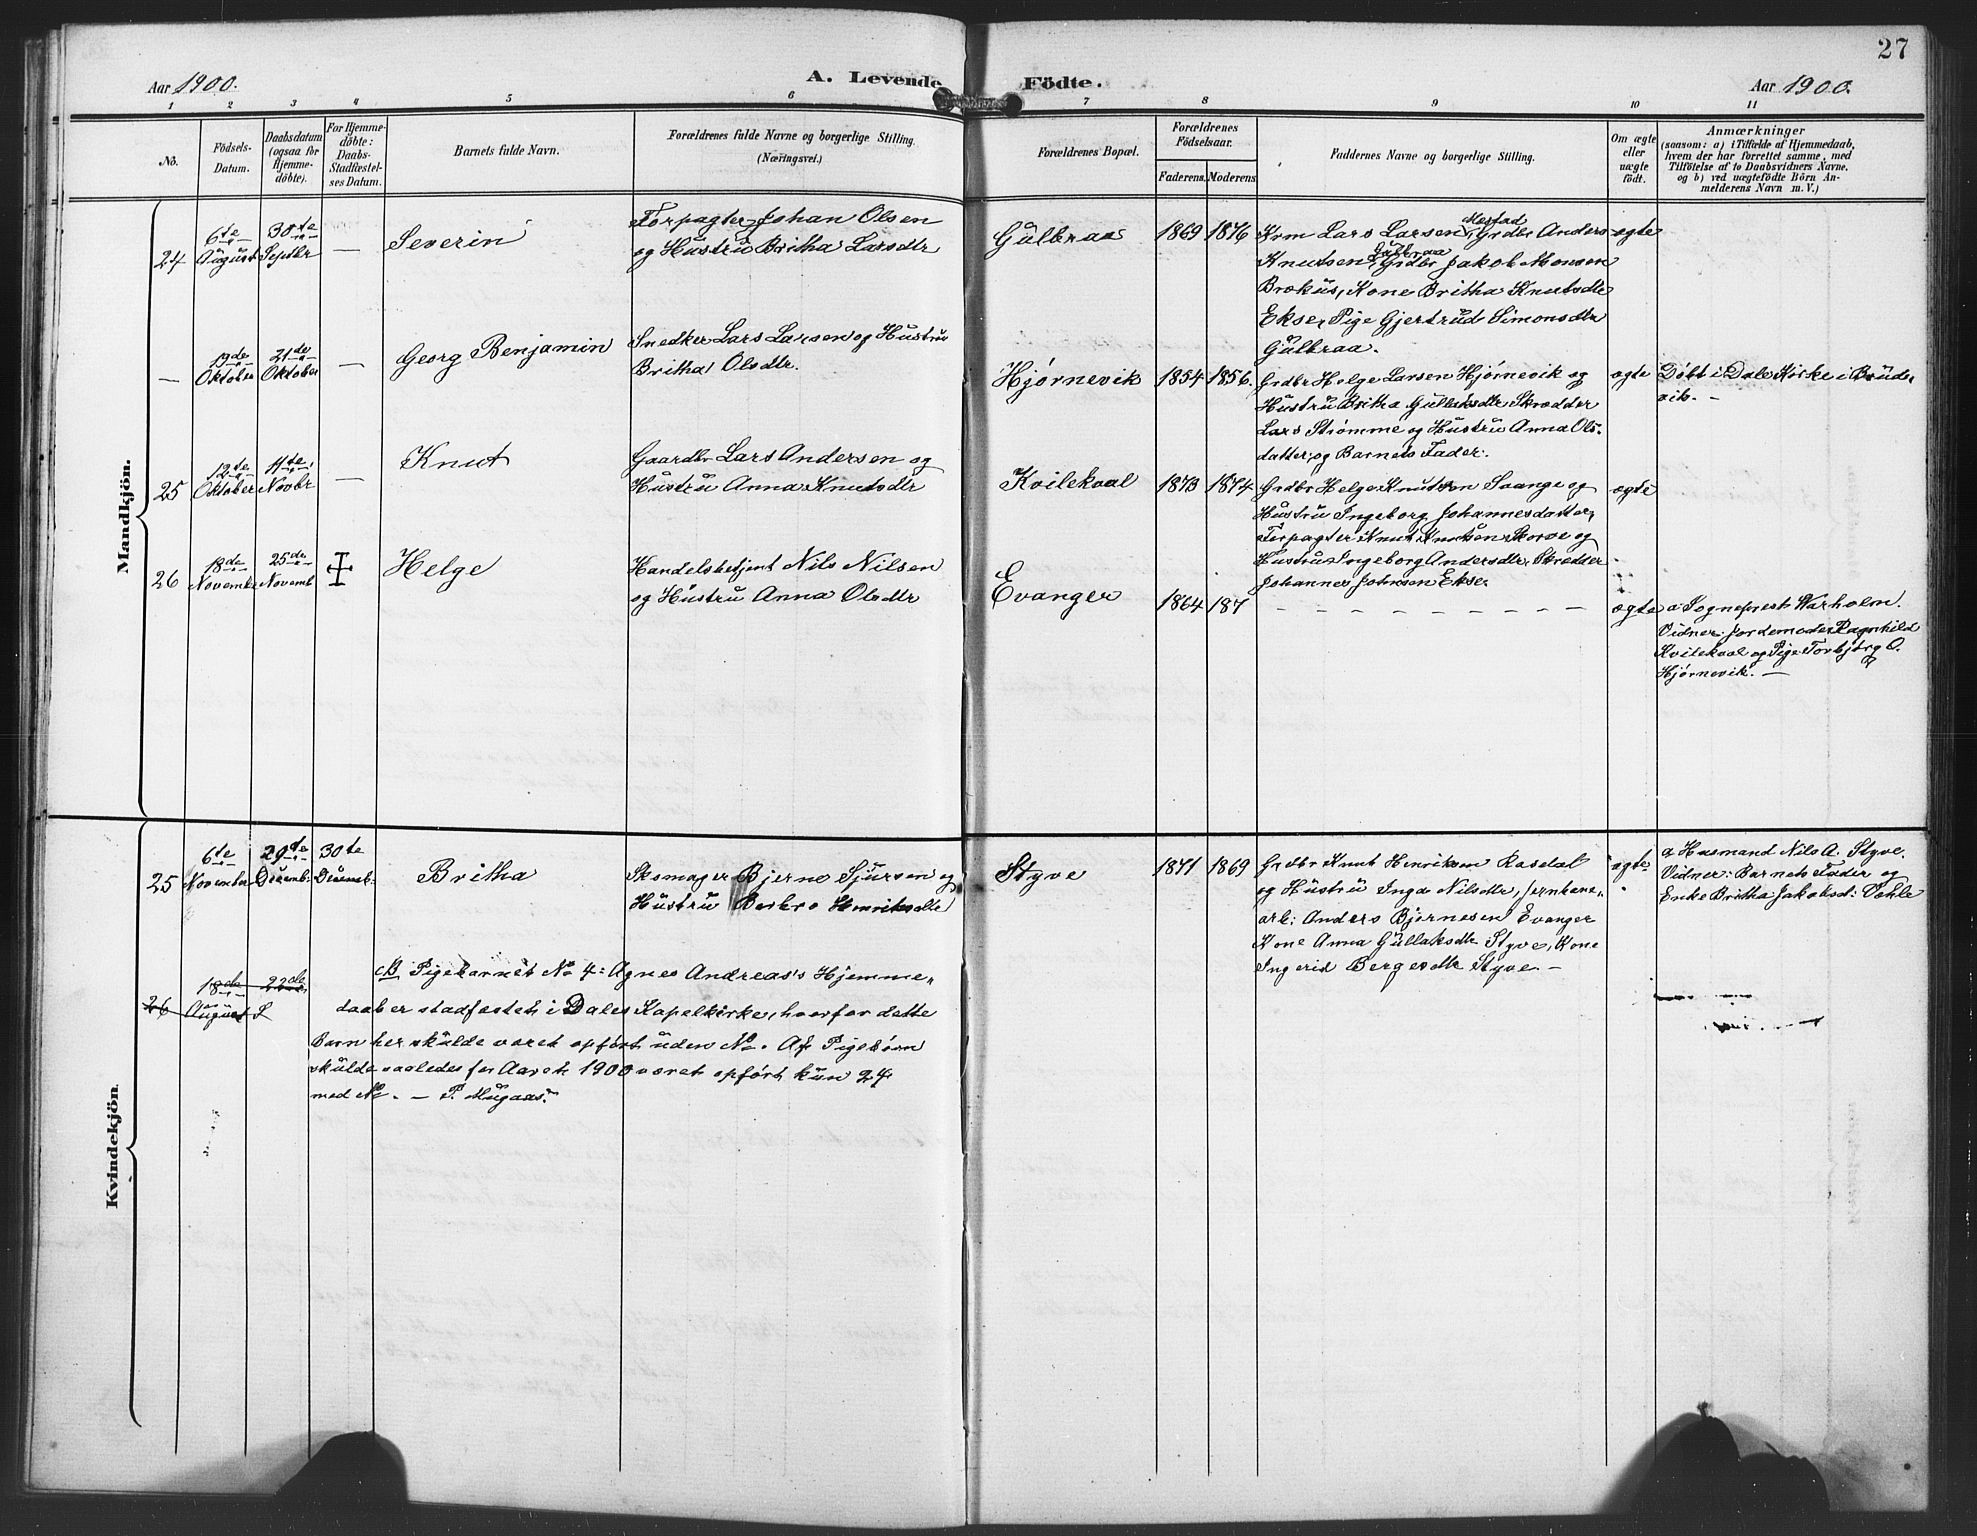 27
Aar 1900.
A. Levende Födte.
Aar 1900.
1 2 3 4 5 6 7 8 9 10 11
No.
Födsels-
Datum.
Daabsdatum
(ogsaa for
Hjemme-
döbte).
For Hjemme-
döbte:
Daabs-
Stadfæstel-
ses Datum.
Barnets fulde Navn.
Forældrenes fulde Navne og borgerlige Stilling.
(Næringsvei.)
Forældrenes Bopæl.
Forældrenes
Födselsaar.
Faderens. Moderens
Faddernes Navne og borgerlige Stilling.
Om ægte
eller
uægte
födt.
Anmærkninger
(saasom: a) i Tilfælde af Hjemmedaab,
hvem der har forrettet samme, med
Tilföielse af to Daabsvidners Navne.
og b) ved uægtefödte Börn An-
melderens Navn m. V.)
Mandkjön.
24
6te
August
30te
Septbr
—
Severin
Forpagter Johan Olsen
og Hustru Britha Larsdtr
Gulbraa
1869 1876
Krm Lars Larsen Mestad, Grdbr Anders
Knutsen Gulbraa, Grdbr Jakob Monsen
Brækus, Kone Britha Knutsdtr
Ekse, Pige Gjertrud Simonsdtr
Gulbraa.
ægte
—
19de
Oktober
21de
Oktober
—
Georg Benjamin
Snedker Lars Larsen og Hustru
Britha Olsdtr.
Hjørnevik
1854 1856.
Grdbr Helge Larsen Hjørnevik og
Hustru Britha Gullaksdtr Skrædder
Lars Strømme og Hustru Anna Ols-
datter, og Barnets Fader.
ægte
Döbt i Dale Kirke i Bruds-
vik. —
25
12te
Oktober
11te
Novbr
—
Knut
Gaardbr Lars Andersen og
Hustru Anna Knutsdtr
Kvilekval
1873 1874
Grdbr Helge Knutsen Saange og
Hustru Ingeborg Johannesdatter,
Forpagter Knut Knutsen Skorve og
Hustru Ingeborg Andersdtr, Skrædder
Johannes Johnsen Ekse
ægte
26
18de
Novembr
25de
Novemb
Helge
Handelsbetjent Nils Nilsen
og Hustru Anna Olsdtr
Evanger
1864 187
— — — — — — — — —
ægte
a Sogneprest Warholm.
Vidner: Jordemoder Ragnhild
Kvilekval og Pige Torbjörg O.
Hjørnevik. —
Kvindekjön
25
6te
November
29de
Decemb:
30te
Decemb:
Britha
Skomager Bjerne Sjursen og
Hustru Barbro Henriksdtr
Styve
1871 1869
Grdbr Knut Henriksen Rasdal
og Hustru Inga Nilsdtr, Jernbane-
arb: Anders Bjørnesen Evanger
Kone Anna Gullaksdtr Styve, Kone
Ingerid Bergesdtr Styve —
ægte
a Husmand Nils A. Styve.
Vidner: Barnets Fader og
Enke Britha Jakobsd: Væhle
26
18de
August
22de
S
NB Pigebarnet No 4: Agnes Andreas's Hjemme-
daab er stadfestet i Dales Kapelkirke, hvorfor dette
Barn her skulde været opført uden No. Af Pigebørn
skulde saaledes for Aaret 1900 været opført kun 24
med No. — P. Mugaas.